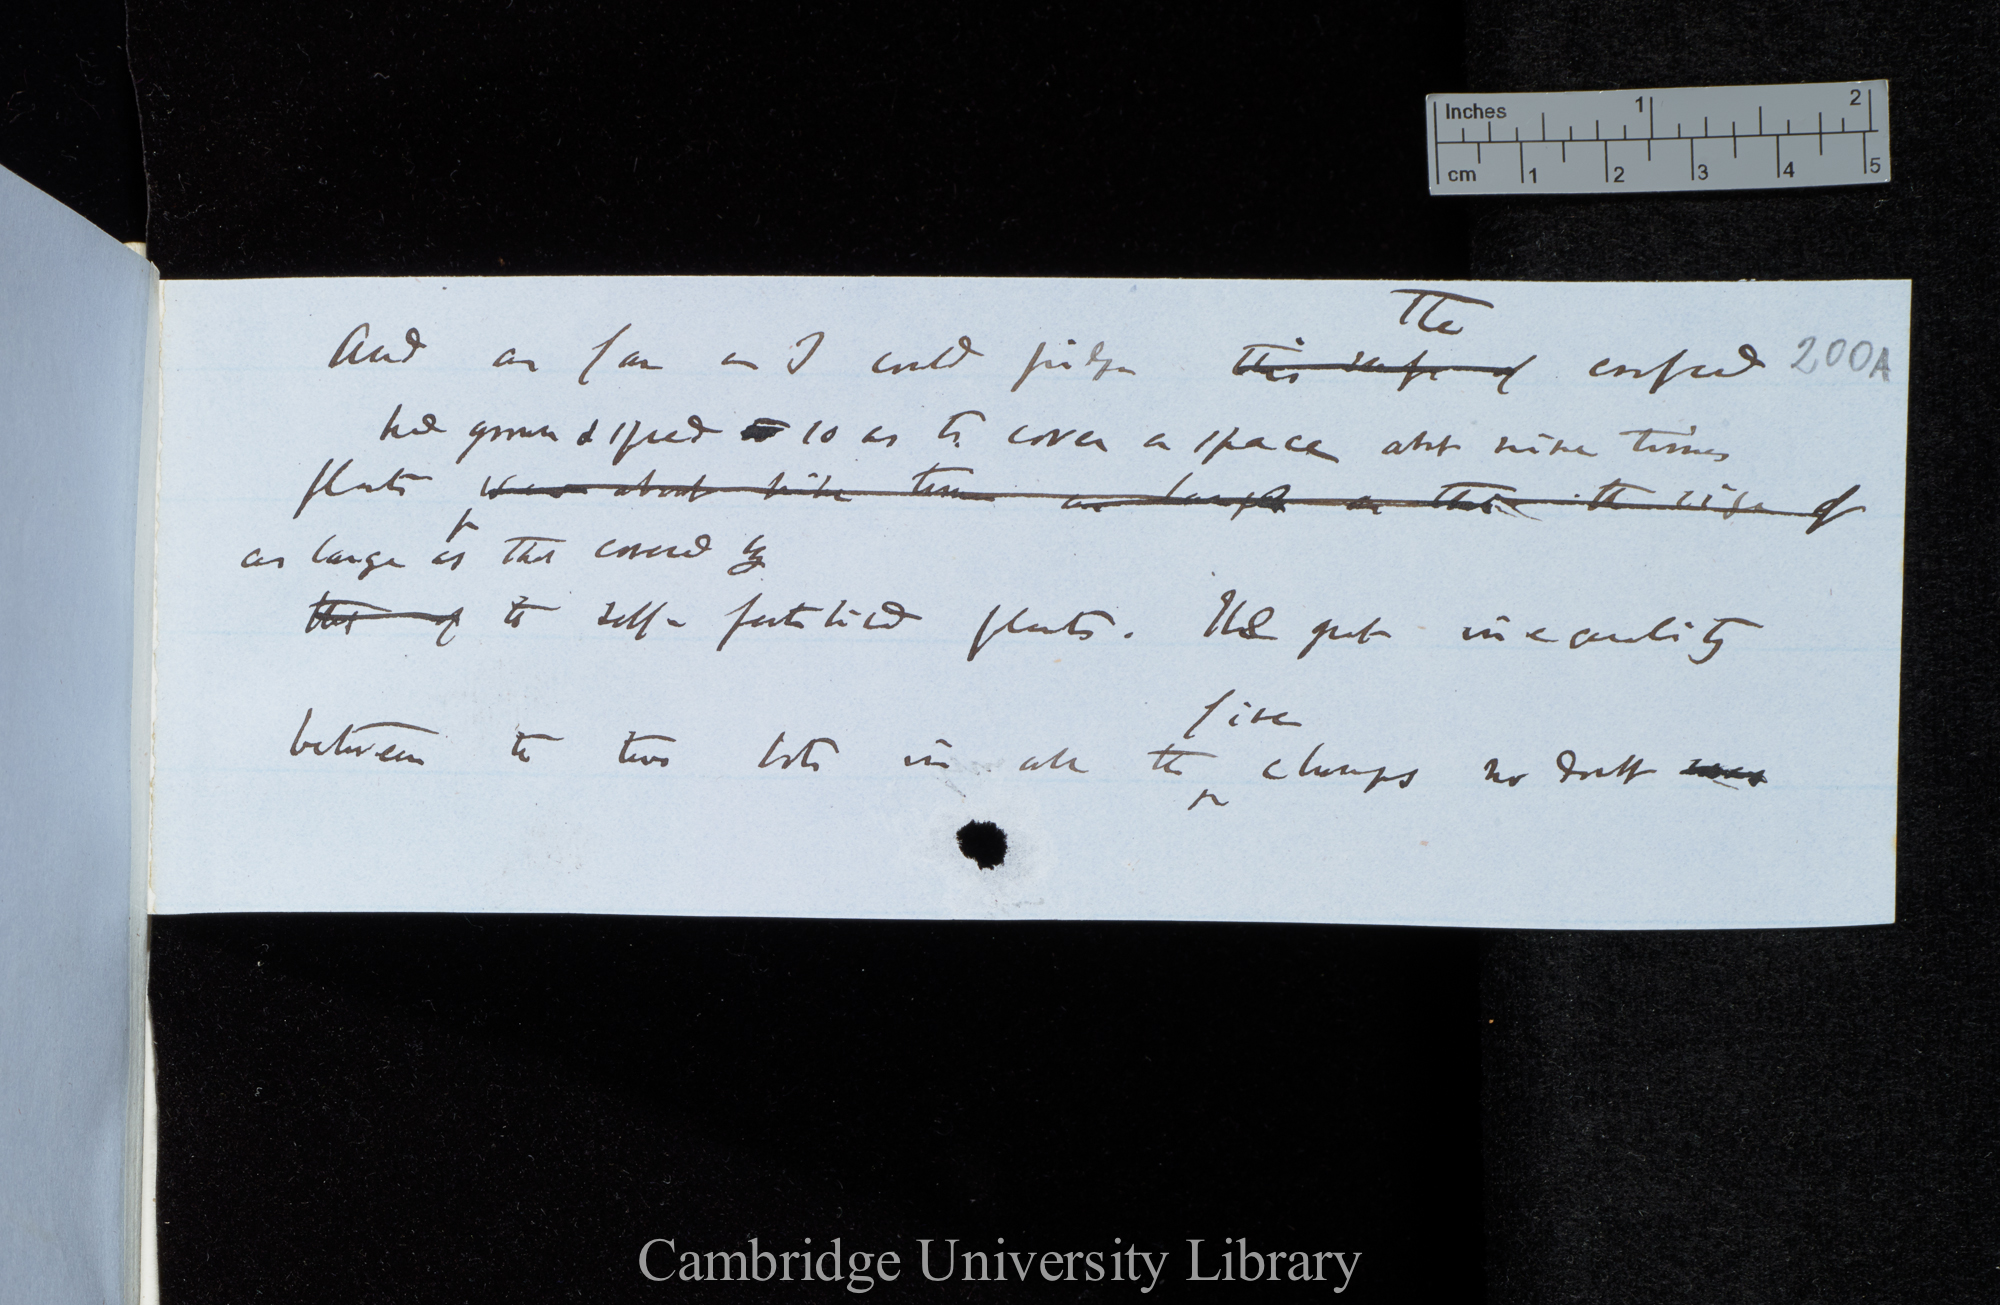 Inches 1 2
cm 1 2 3 4 5
The
And as far as I could judge this size of crossed 200A
had grown & spread to so as to cover a space abt nine times
plants was about nine times as large as that the size of
as large as that covered by
that of the self-fertilised plants. The great inequality
five
between the two lots in all the clumps no doubt was
Cambridge University Library